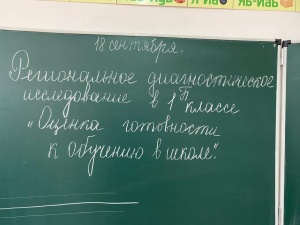 18 сентября.
Региональное диагностическое
исследование в 1ᵐ классе
„Оценка готовности
к обучению в школе“.